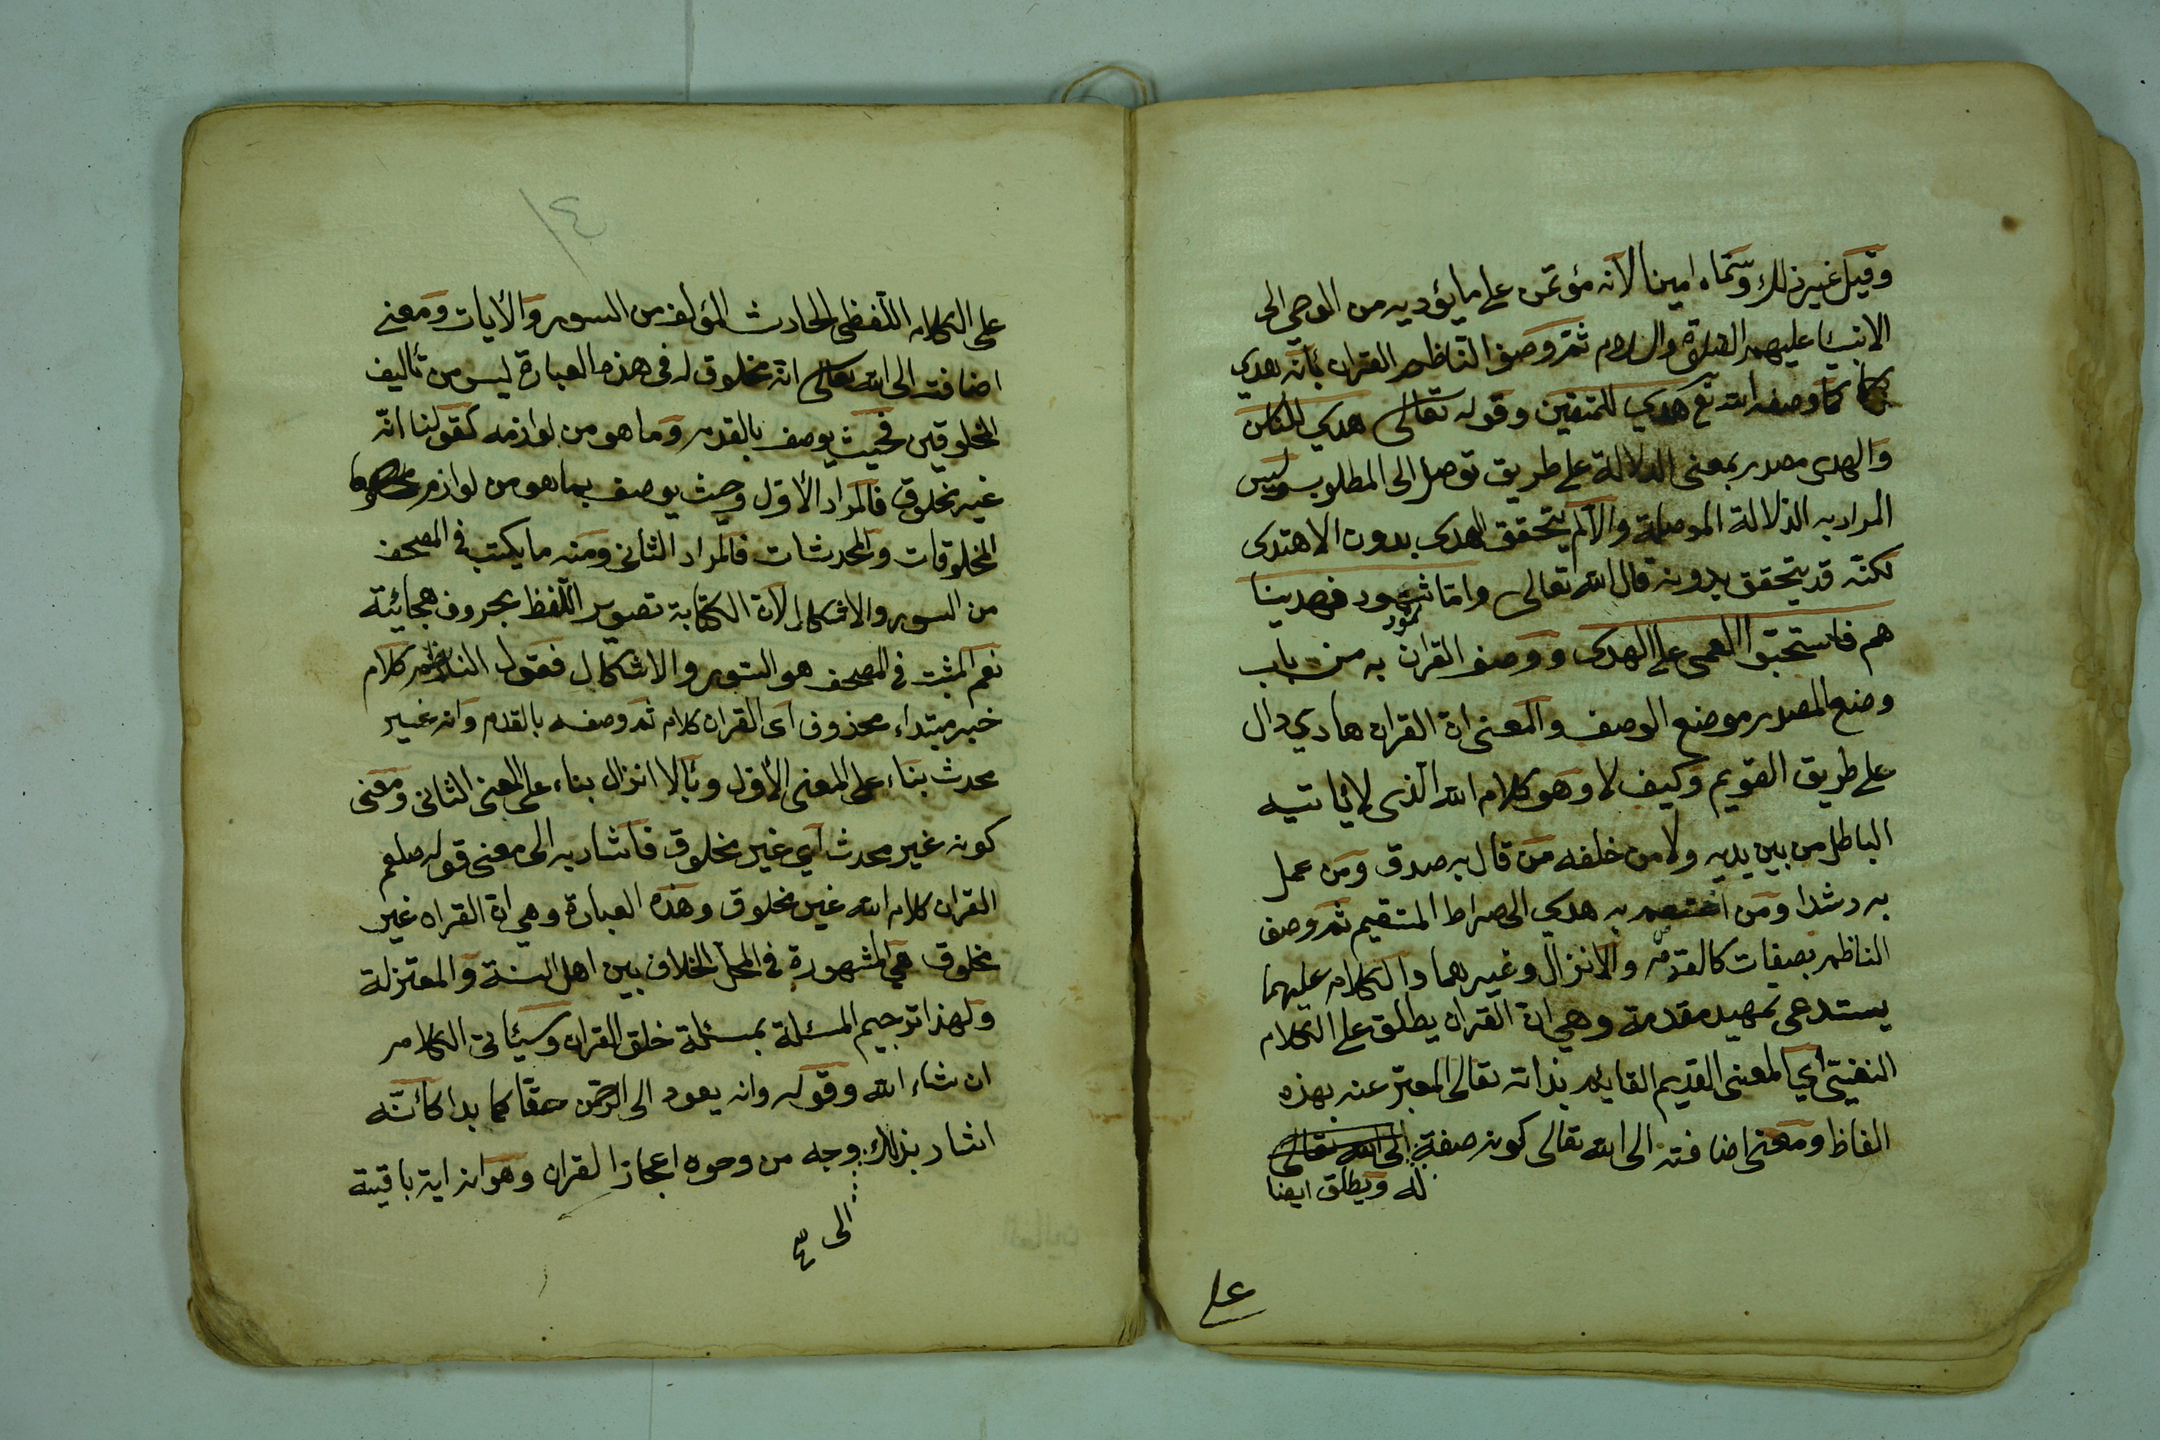 وقيل غير ذلك وسماه امينا لانه مؤتمن على ما يؤديه من الوحي الى
الانبيا عليهم الصلاة والسلام ثم وصف الناظم القران بانه هدى
كما وصفه الله تع هدي للمتقين وقوله تعالى هدي للناس
والهدى مصدر بمعنى الدلالة على طريق توصل الى المطلوب وليس
المراد به الدلالة الموصلة والا لم يتحقق الهدى بدون الاهتدى
لكنه قد يتحقق بدونه قال الله تعالى واما ثمود فهدينا
ثمود
هم فاستحبوا العمى على الهدى ووصف القران به من باب
وضع المصدر موضع الوصف والمعنى ان القران هادي دال
على طريق القويم وكيف لا وهو كلام الله الذى لا يأتيه
الباطل من بين يديه ولا من خلفه من قال به صدق ومن عمل
به رشدا ومن اعتصم به هدي الى صراط المتقيم ثم وصف
الناظم بصفات كالقدم والانزال وغيرهما والكلام عليهما
يستدعى تمهيد مقدمة وهي ان القران يطلق على الكلام
النفسي أي المعنى القديم القايم بذاته تعالى المعبر عنه بهذه
الفاظ ومعنى اضافته الى الله تعالى كونه صفة الى الله تعالى
له ويطلق ايضا
على
١٤
على الكلام اللفظى الحادث المؤلف من السور والأيات ومعنى
اضافته الى الله تعالى انه مخلوق له فى هذه العبارة ليس من تأليف
المخلوقين فحيث يوصف بالقدم وما هو من لوازمه كقولنا انه
غير مخلوق فالمراد الأول وحيث يوصف بما هو من لوازم
المخلوقات والمحدثات فالمراد الثانى ومنه ما يكتب فى المصحف
من السور والاشكال لان الكتابة تصوير اللفظ بحروف هجائية
نعم المثبت فى المصحف هو السور والاشكال فقول الناظم كلام
خبر مبتداء محذوف اى القران كلام ثم وصفه بالقدم وانه غير
محدث بناء على المعنى الأول وبالا انزال بناء على المعنى الثانى ومعنى
كونه غير محدث أي غير مخلوق فاشار به الى معنى قوله صلعم
القران كلام الله غير مخلوق وهذه العبارة وهي ان القران غير
مخلوق هي المشهورة فى المحل الخلاف بين اهل السنة والمعتزلة
ولهذا ترجيم المسئلة بمسئلة خلق القران وسيأتى الكلام
ان شاء الله وقوله وانه يعود الى الرحمن حقا كما بدا كأنه
اشار بذلك بوجه من وجوه اعجاز القران وهو انه اية باقية
الى